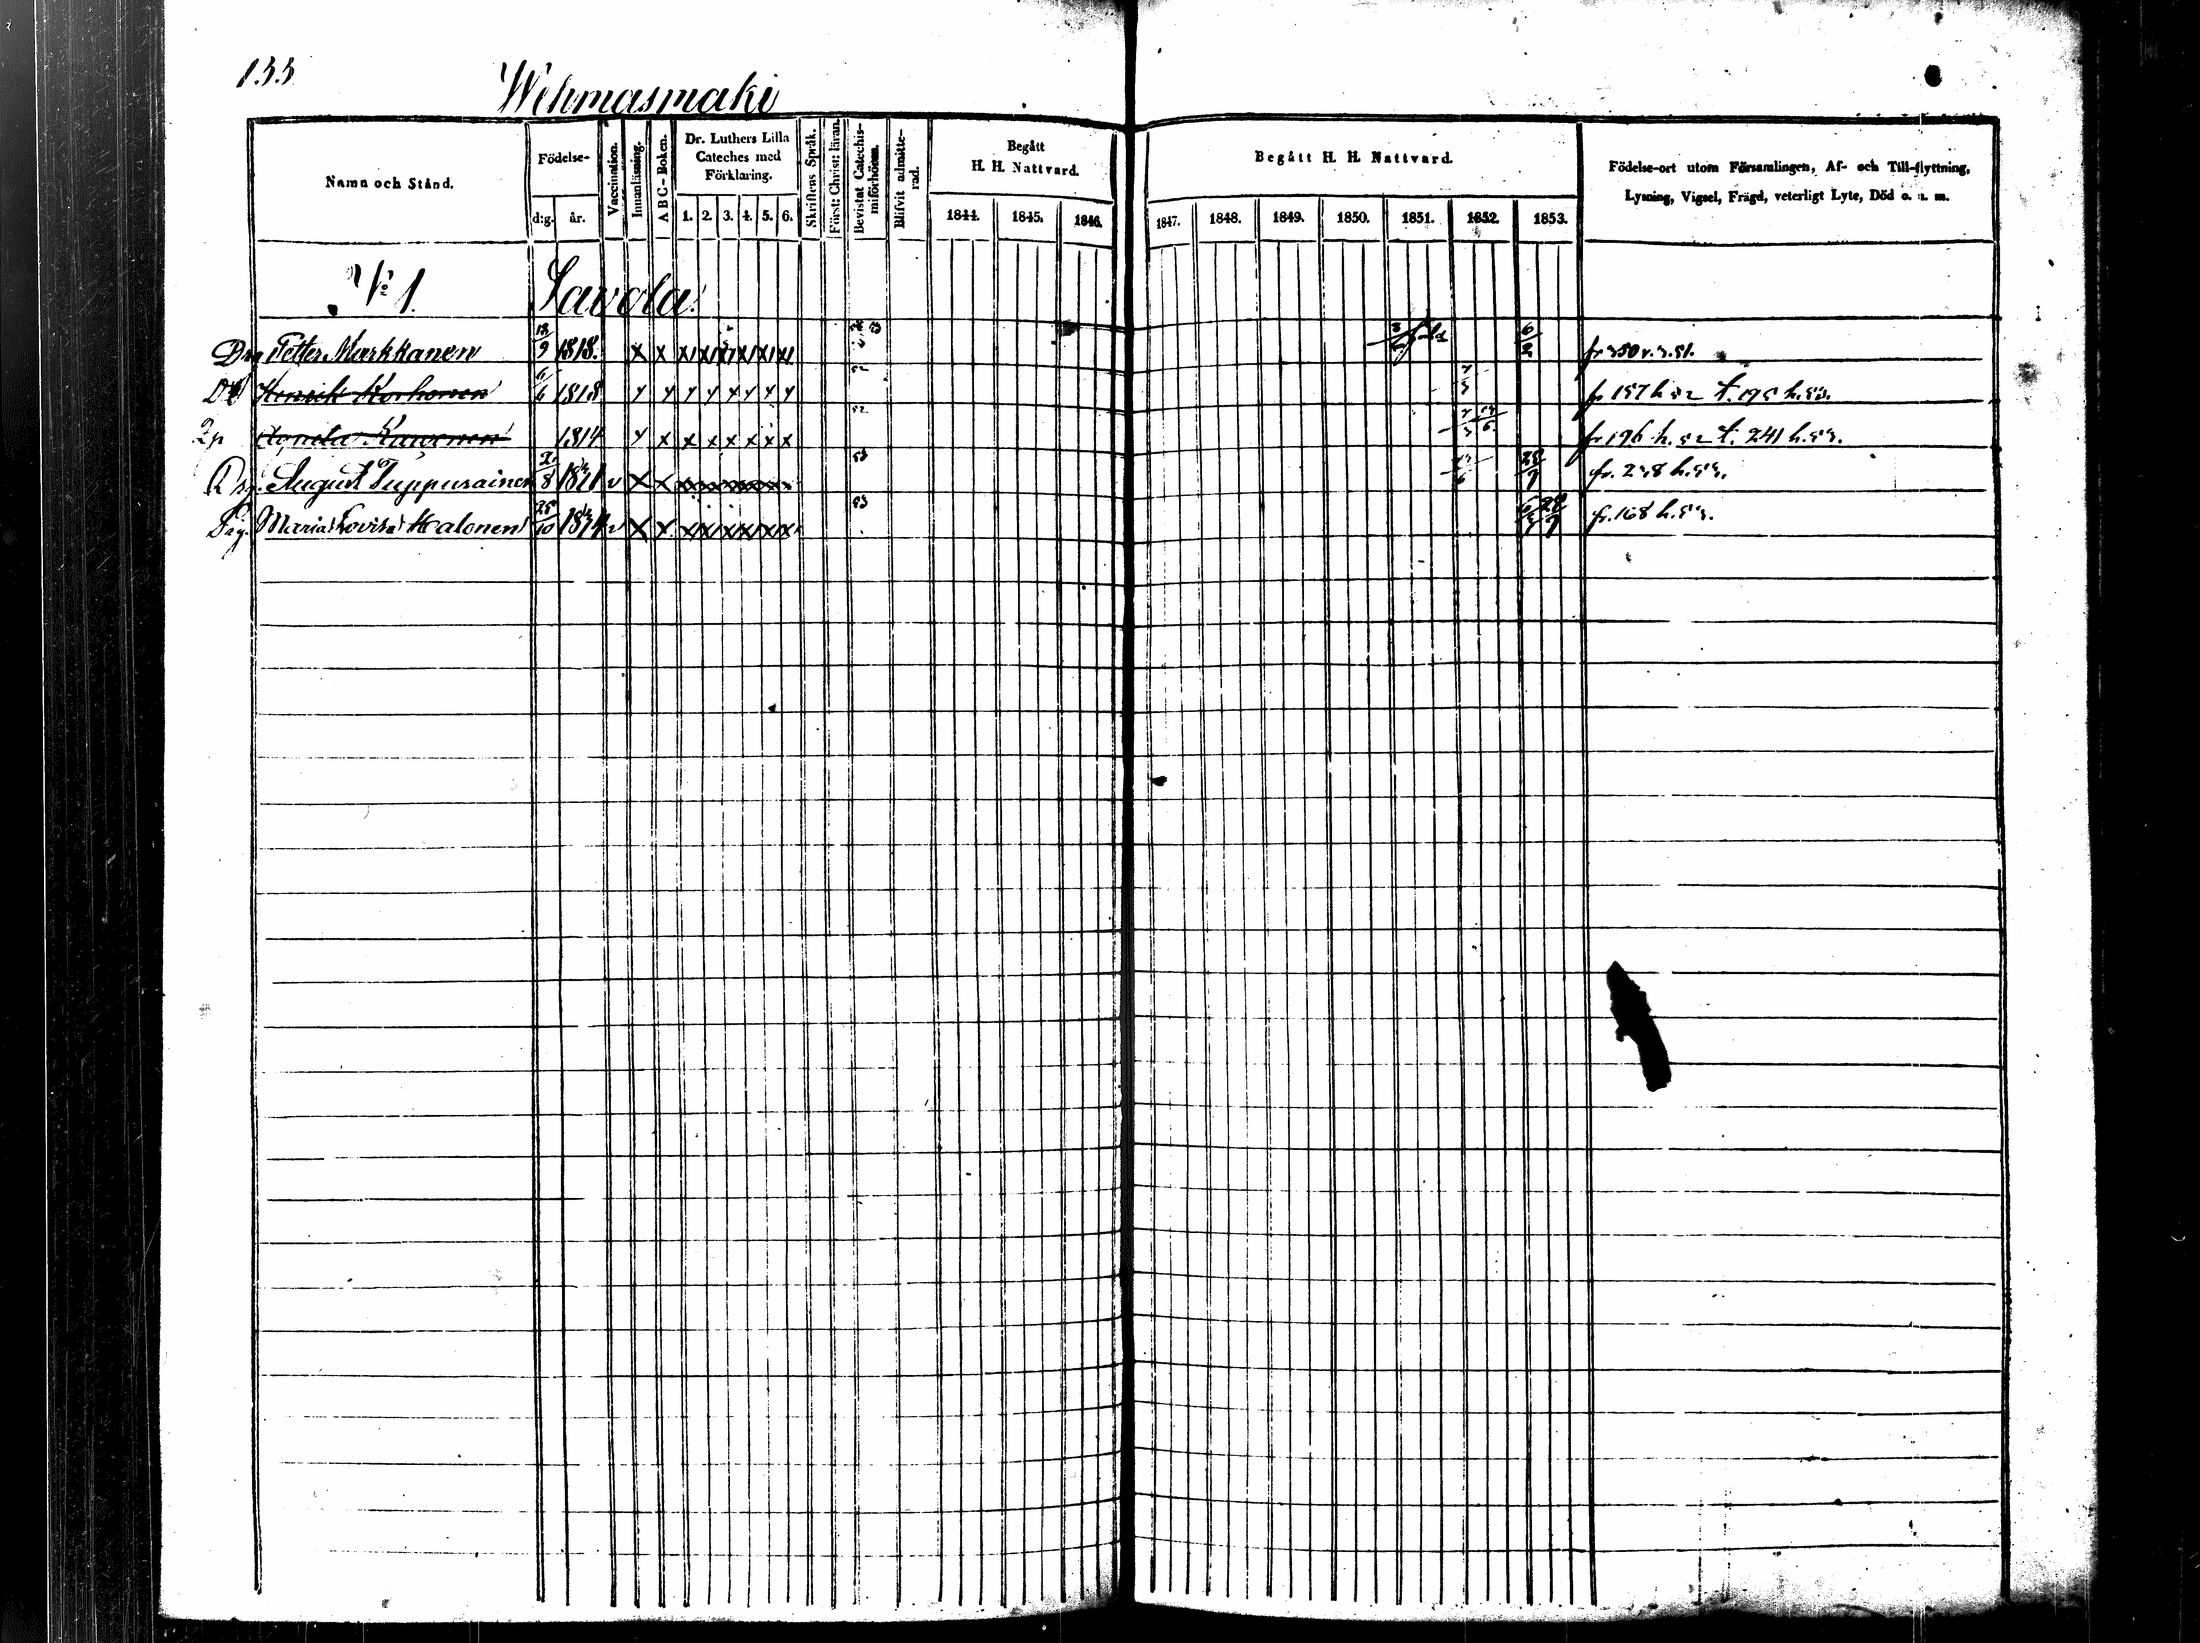 133
Wehmasmäki
Namn och Stånd.
Födelse-
d:g. år.
Vaccination.
Innanläsning.
A B C-Boken.
Dr. Luthers Lilla
Cateches med
Förklaring.
1. 2. 3. 4. 5. 6.
Skriftens Språk.
Först: Christ: läran.
Bevistat Catechis-
miförhören.
Blifvit admitte-
rad.
Begått
H. H. Nattvard.
1844. 1845. 1846.
Begått H. H. Nattvard.
1847. 1848. 1849. 1850. 1851. 1852. 1853.
Födelse-ort utom Församlingen, Af- och Till-flyttning,
Lysning, Vigsel, Frägd, veterligt Lyte, Död o. s. m.
No 1. Savola
Drg Petter Markkanen 18/9 1818. x x x x x x x x 6/2 fr 350 v. 3. 51.
Henrik Korhonen 6/6 1818 fr 157 h 52 t. 195 h. 53.
Agneta 1814 x x x x x x x 52 fr 196 h. 52 t. 241 h. 53.
Drg. August Tuppurainen 2/8 1821 v x x x x x x x x 53 28/7 fr. 238 h. 53.
Pig. Maria Lovisa Halonen 25/10 1834 v x x x x x x x x 53 28/7 fr. 168 h. 53.